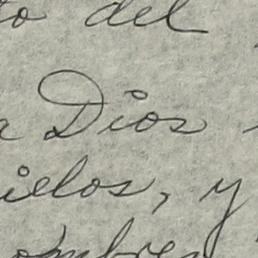 to del
a Dios
ielos, y
ombres